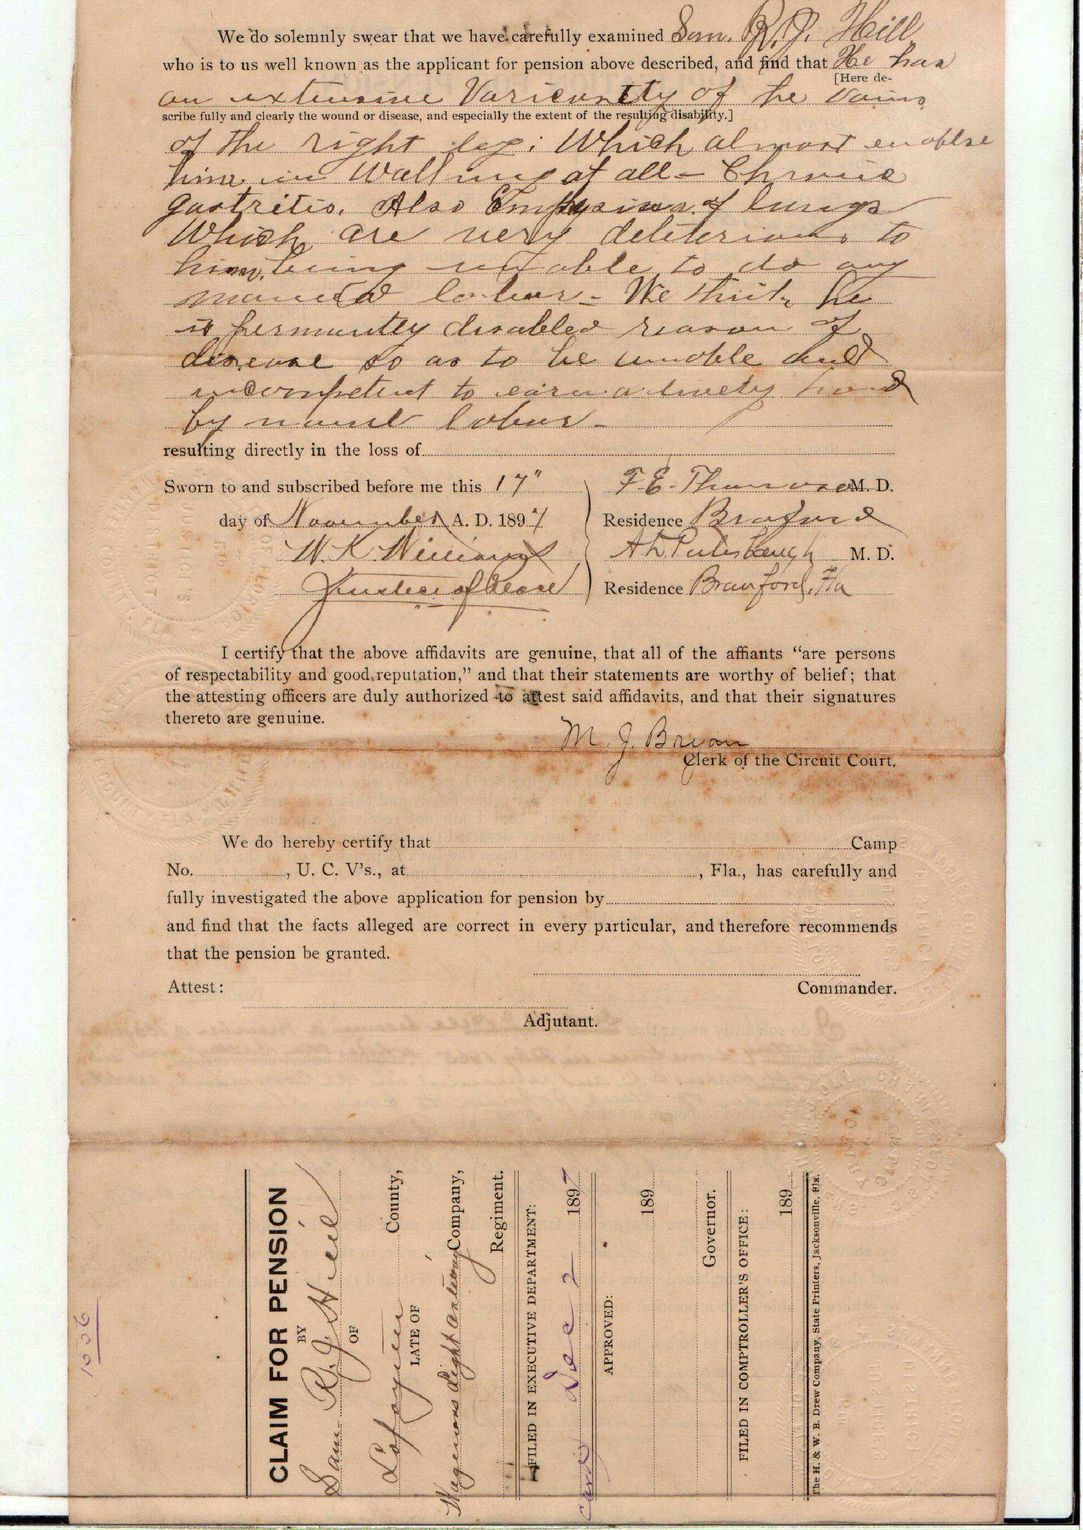 We do solemnly swear that we have carefully examined Sam. R. J. Hill
who is to us well known as the applicant for pension above described, and find that He has
[Here de-
an extensive of he
scribe fully and clearly the wound or disease, and especially the extent of the resulting disability.]
of the right leg; Which almost
him in Walking at all - Chronic
gastritis. Also of lungs
Which are very to
him, being unable to do any
labor - We think he
is disabled reason of
disease so as to be unable and
to earn a
by labor -
resulting directly in the loss of
Sworn to and subscribed before me this 17" F. E. M. D.
day of November A. D. 1897 Residence
W. K. Williams M. D.
Justice of Peace Residence Branford, Fla
I certify that the above affidavits are genuine, that all of the affiants "are persons
of respectability and good reputation," and that their statements are worthy of belief; that
the attesting officers are duly authorized to attest said affidavits, and that their signatures
thereto are genuine.
M. J. Bryan
Clerk of the Circuit Court.
We do hereby certify that Camp
No. , U. C. V's., at , Fla., has carefully and
fully investigated the above application for pension by
and find that the facts alleged are correct in every particular, and therefore recommends
that the pension be granted.
Attest: Commander.
Adjutant.
1006
CLAIM FOR PENSION
BY
Sam R. J. Hill
OF
County,
LATE OF
Light Artillery Company,
Regiment.
FILED IN EXECUTIVE DEPARTMENT:
Dec 2 1897
APPROVED:
189
Governor.
FILED IN COMPTROLLER'S OFFICE:
189
The H. & W. B. Drew Company, State Printers, Jacksonville, Fla.